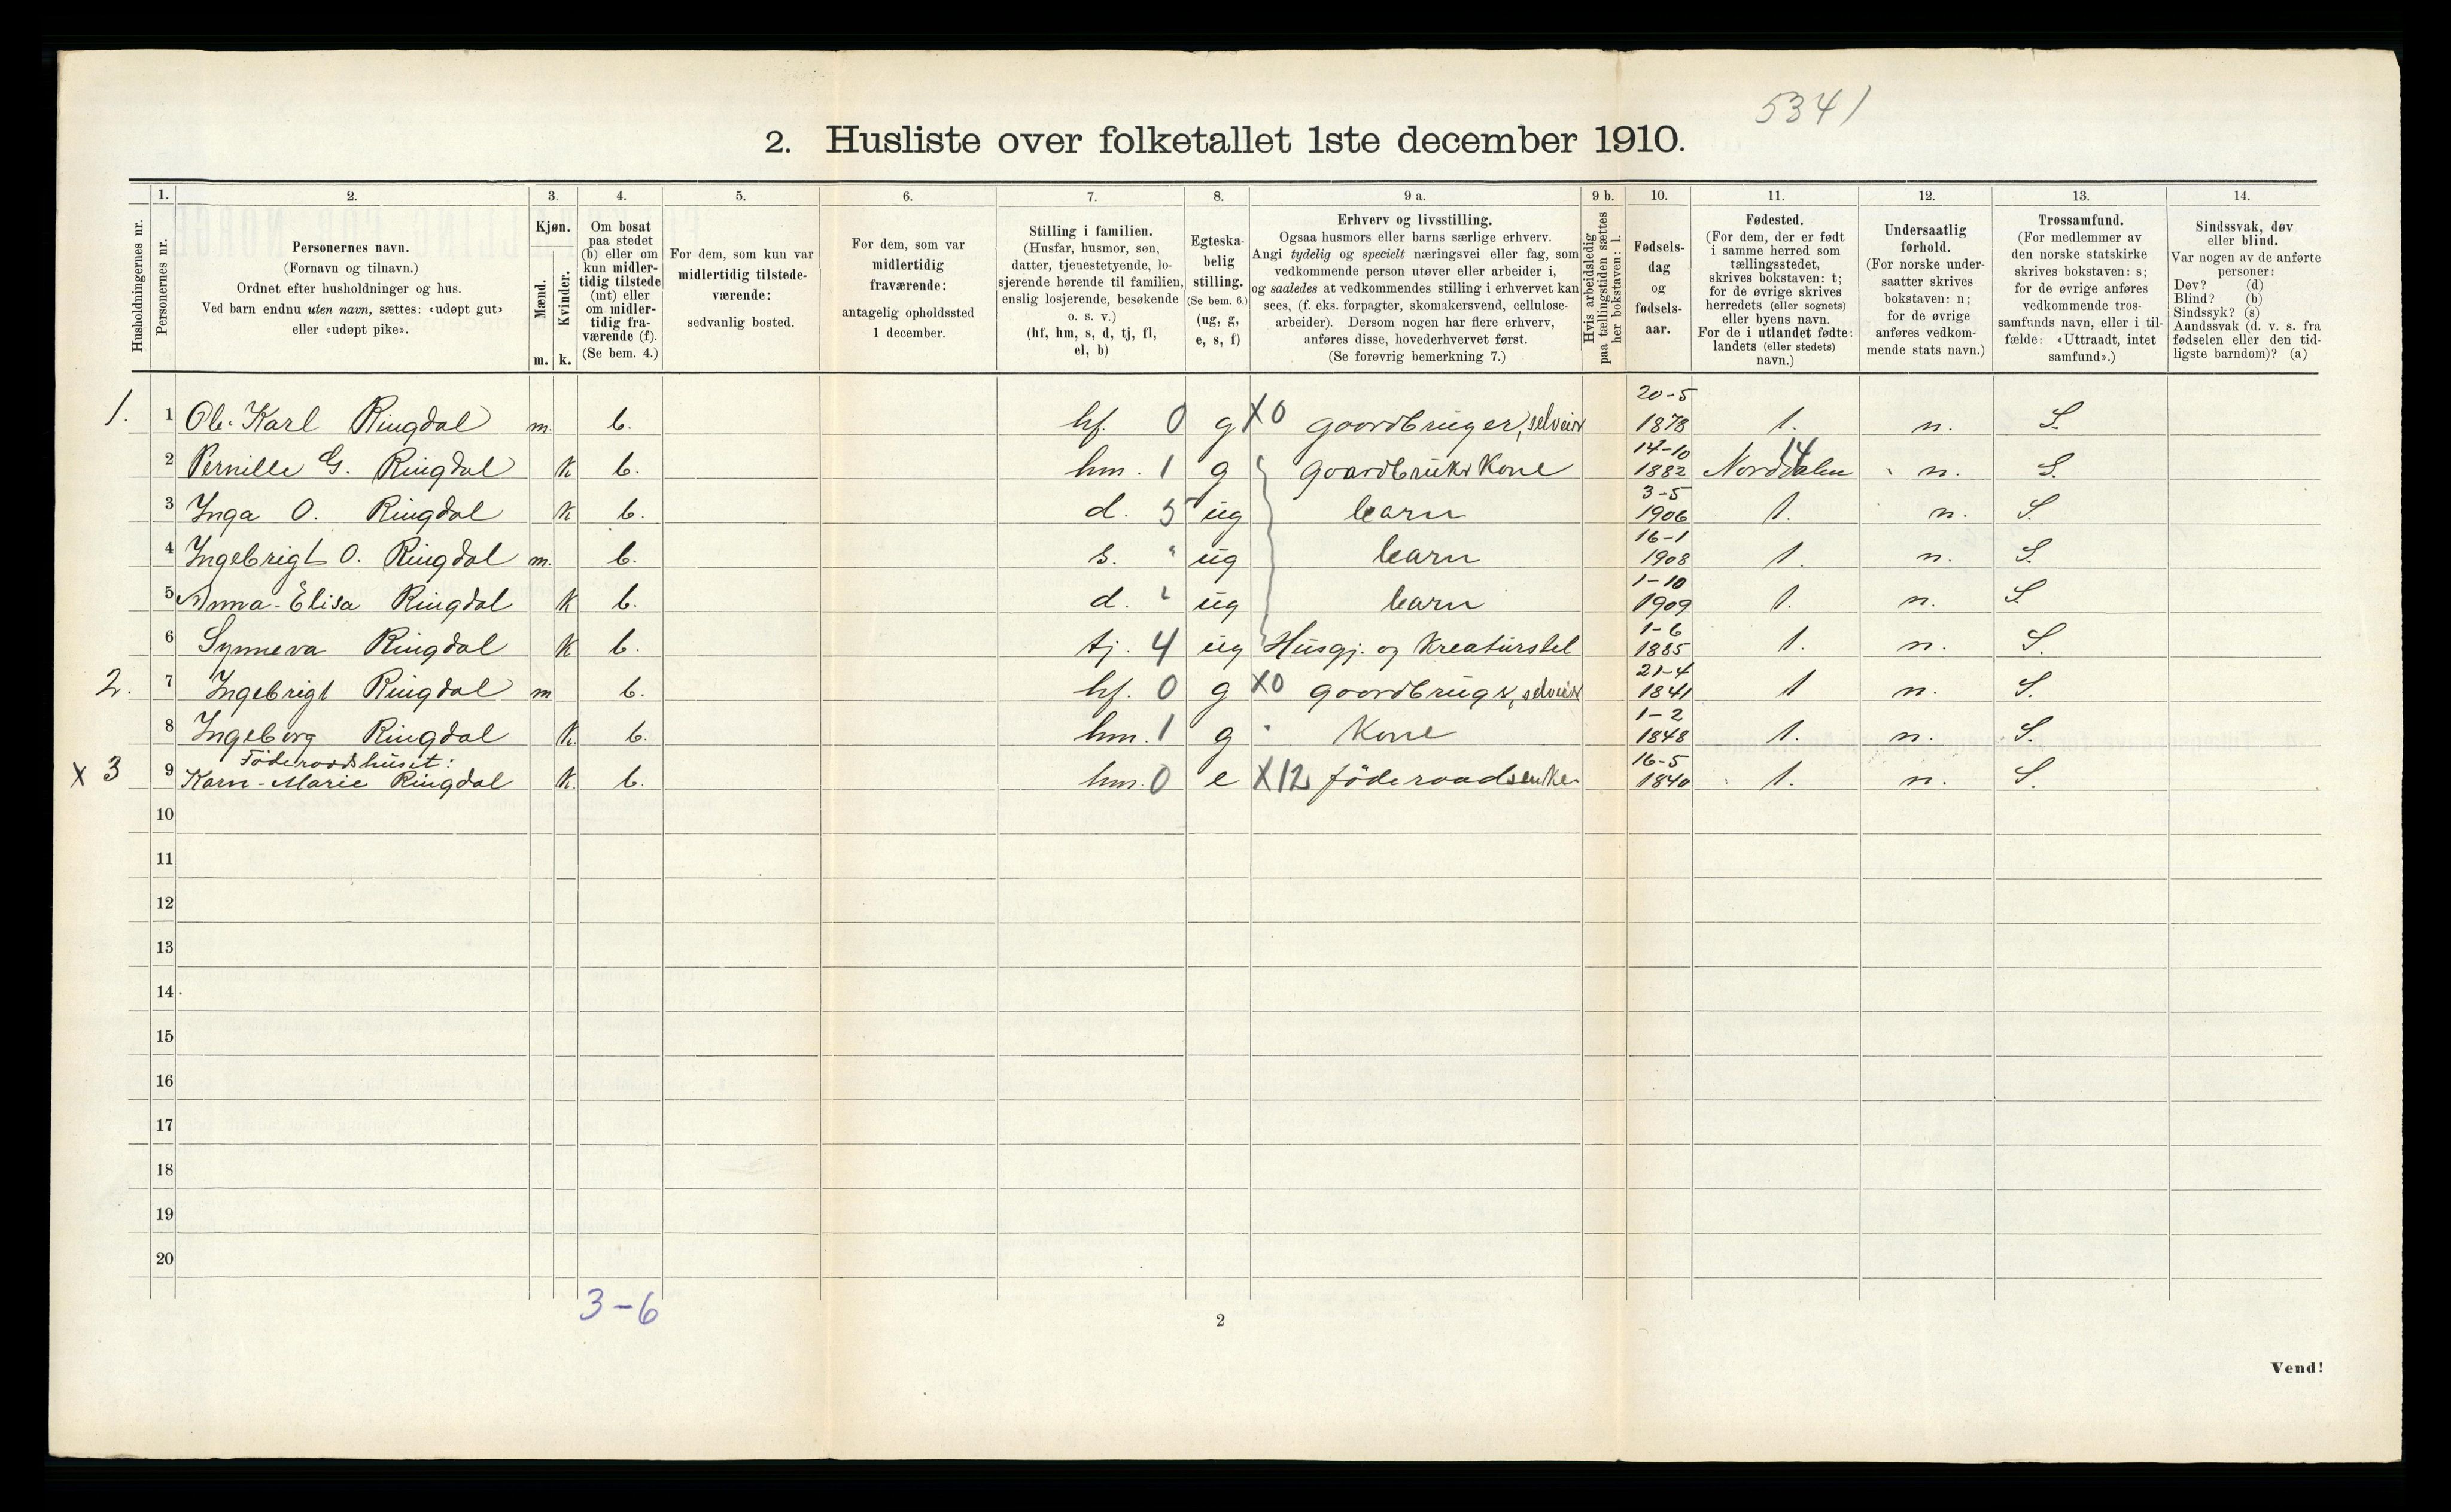 5341
2. Husliste over folketallet 1ste december 1910.
1. 2. 3. 4. 5. 6. 7. 8. 9 a. 9 b. 10. 11. 12. 13. 14.
Husholdningernes nr.
Personernes nr.
Personernes navn.
(Fornavn og tilnavn.)
Ordnet efter husholdninger og hus.
Ved barn endnu uten navn, sættes: «udøpt gut»
eller «udøpt pike».
Kjøn.
Mænd.
Kvinder.
m. k.
Om bosat
paa stedet
(b) eller om
kun midler-
tidig tilstede
(mt) eller
om midler-
tidig fra-
værende (f).
(Se bem. 4.)
For dem, som kun var
midlertidig tilstede-
værende:
sedvanlig bosted.
For dem, som var
midlertidig
fraværende:
antagelig opholdssted
1 december.
Stilling i familien.
(Husfar, husmor, søn,
datter, tjenestetyende, lo-
sjerende hørende til familien,
enslig losjerende, besøkende
o. s. v.)
(hf, hm, s, d, tj, fl,
el, b)
Egteska-
belig
stilling.
(Se bem. 6.)
(ug, g,
e, s, f)
Erhverv og livsstilling.
Ogsaa husmors eller barns særlige erhverv.
Angi tydelig og specielt næringsvei eller fag, som
vedkommende person utøver eller arbeider i,
og saaledes at vedkommendes stilling i erhvervet kan
sees, (f. eks. forpagter, skomakersvend, cellulose-
arbeider). Dersom nogen har flere erhverv,
anføres disse, hovederhvervet først.
(Se forøvrig bemerkning 7.)
Hvis arbeidsledig
paa tællingstiden sættes
her bokstaven: l.
Fødsels-
dag
og
fødsels-
aar.
Fødested.
(For dem, der er født
i samme herred som
tællingsstedet,
skrives bokstaven: t;
for de øvrige skrives
herredets (eller sognets)
eller byens navn.
For de i utlandet fødte:
landets (eller stedets)
navn.)
Undersaatlig
forhold.
(For norske under-
saatter skrives
bokstaven: n;
for de øvrige
anføres vedkom-
mende stats navn.)
Trossamfund.
(For medlemmer av
den norske statskirke
skrives bokstaven: s;
for de øvrige anføres
vedkommende tros-
samfunds navn, eller i til-
fælde: «Uttraadt, intet
samfund».)
Sindssvak, døv
eller blind.
Var nogen av de anførte
personer:
Døv? (d)
Blind? (b)
Sindssyk? (s)
Aandssvak (d. v. s. fra
fødselen eller den tid-
ligste barndom)? (a)
1. 1 Ole Karl Ringdal m. b. hf. 0 g X0 gaardbruger, selveier 20-5 1878 t. n. S.
2 Pernille G. Ringdal k b. hm. 1 g gaardbrukr Kone 14-10 1882 Norddalen 14 n. S.
3 Inga O. Ringdal k b. d. 5 ug barn 3-5 1906 t. n. S.
4 Ingebrigt O. Ringdal m. b. s. " ug barn 16-1 1908 t. n. S.
5 Anna-Elisa Ringdal k b. d. " ug barn 1-10 1909 t. n. S.
6 Synneva Ringdal k b. tj. 4 ug Husgj. og Kreaturstel 1-6 1885 t. n. S.
2. 7 Ingebrigt Ringdal m b. hf. 0 g X0 gaardbruger, selveier 21-4 1841 t n. S.
8 Ingeborg Ringdal k. b. hm. 1 g Kone 1-2 1848 t. n. S.
Föderaadshuset:
X 3 9 Karn-Marie Ringdal k. b. hm. 0 e X12 föderaadsenke 16-5 1840 t. n. S.
10
11
12
13
14
15
16
17
18
19
20
3-6
2
Vend!